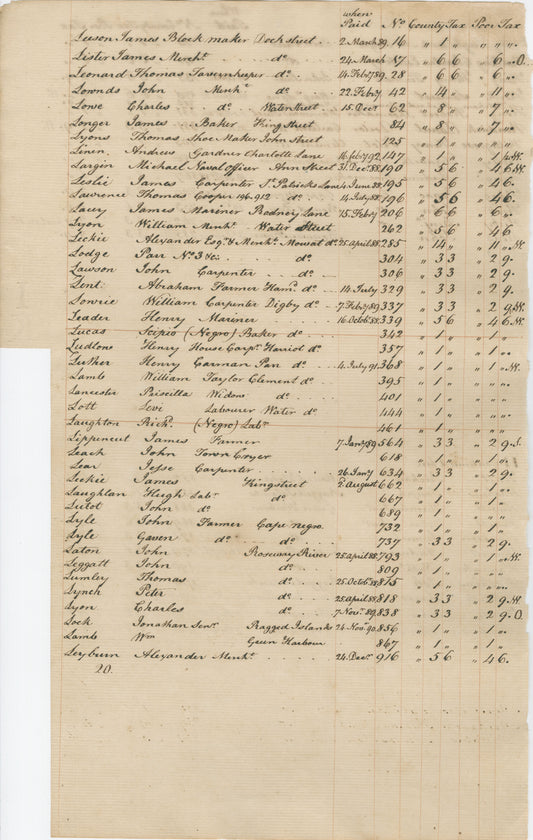 when
Paid No County Tax Poor Tax
Leeson James Block maker Dock street .. 2 March 89. 16 " 1 " " " "
Lister James Mercht. do. 24 March 17 " 6 6 " 6 "
Leonard Thomas Tavernkeeper do. 14 Feby 89. 28 " 6 6 " 6 "
Lownds John Mercht do. 22 Feby 42 " 14 " " 11 "
Lowe Charles do. Water Street . 15 Decr 62 " 8 " " 7 "
Longer James Baker King Street 84 " 8 " " 7 "
Lyons Thomas Shoe Maker John Street 125 " 1 " " " "
Linen. Andrew Gardner Charlotte Lane 16 feby 92. 147 " 1 "
Largin Michael Naval officer Ann Street 31. Decr 88. 190 " 5 6 " 4 6
Leslie James Carpenter St. Patricks Lane 4 June 88. 195 " 5 6 " 4 6.
Lawrence Thomas Cooper 196.912 do. 14 July 88. 196 " 5 6 " 4 6.
Lacey James Mariner Rodney Lane 15 Feby 206 " 6 6 " 6 "
Lyon William Mercht. Water Street 262 " 5 6 " 4 6
Leckie Alexander Esqr. & Mercht. Mowat do. 25 april 88. 285 " 14 " " 11 "
Lodge Parr No 3 &c. do. 304 " 3 3 " 2 9.
Lawson John Carpenter do 306 " 3 3 " 2 9.
Lent. Abraham Farmer do. 14 July 329 " 3 3 " 2 9.
Lowrie William Carpenter Digby do. 7 Feby 89. 337 " 3 3 " 2 9.
Leader Henry Mariner 16 Octob. 88. 339 " 5 6 " 4 6
Lucas Scipio (Negro) Baker do. 342 " 1 " " 1 "
Ludlow Henry House Carpr. Harriot do. 357 " 1 " " 1 "
Luther Henry Carman Pan do. 4 July 91. 368 " 1 " " 1 "
Lamb William Taylor Clement do. 395 " 1 " " " "
Lancester Priscilla Widow do. 401 " 1 " " " "
Lott Levi Labourer Water do. 444 " 1 " " " "
Laughton Richd. (Negro) Labr. 461 " 1 " " 1 "
Lippencut James Farmer 7 Jany 89 564 " 3 3 " 2 9.
Leach John Town Cryer 618 " 1 " " 1 "
Lear Jesse Carpenter 26 Jany 634 " 3 3 " 2 9.
Leckie James Kingstreet 2 August 662 " 1 " " 1 "
Laughlan Hugh Labr. do. 667 " 1 " " 1 "
Lutot John do. 689 " 1 " " " "
Lyle John Farmer Cape negro 732 " 1 " " 1 "
Lyle Gawen do. do. 737 " 3 3 " 2 9.
Laton John Roseway River 25 april 88. 793 " 1 " " 1 "
Leggatt John do. 809 " 1 " " 1 "
Lumley Thomas do. 25 Octob. 88. 815 " 1 " " " "
Lynch Peter do. 25 april 88. 818 " 3 3 " 2 9.
Lyon Charles do. 7 Novr. 89. 838 " 3 3 " 2 9. O.
Lock Jonathan Senr. Ragged Islands 24 Novr. 90. 856 " 1 " " 1 "
Lamb Wm Green Harbour 867 " 1 " " 1 "
Leyburn Alexander Mercht. 24 Decr 916 " 5 6 " 4 6.
20.